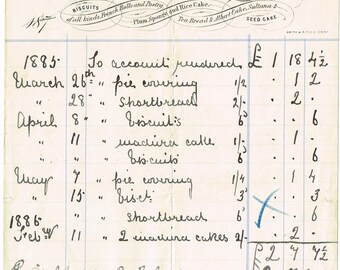 BISCUITS
of all kinds, French Rolls and Pastry,
Plum, Squash, and Rice Cake,
Tea Bread & Albert Cake, Sultana &
SEED CAKE.
1885 To account rendered £ 1 18 4½
March 26th " pie covering 1/2 . 1 2
" 28 " shortbread . 2 .
April 8 " biscuits 6d . . 6
" 11 " madeira cake 1/- . 1 .
" " biscuits 6d . . 6
May 7 " pie covering 1/4 . 1 4
" 15 " bisct: 3d . . 3
1886 " shortbread 6d . . 6
Feb 11 " 2 madeira cakes 2/- . 2 .
£ 2 7 7½